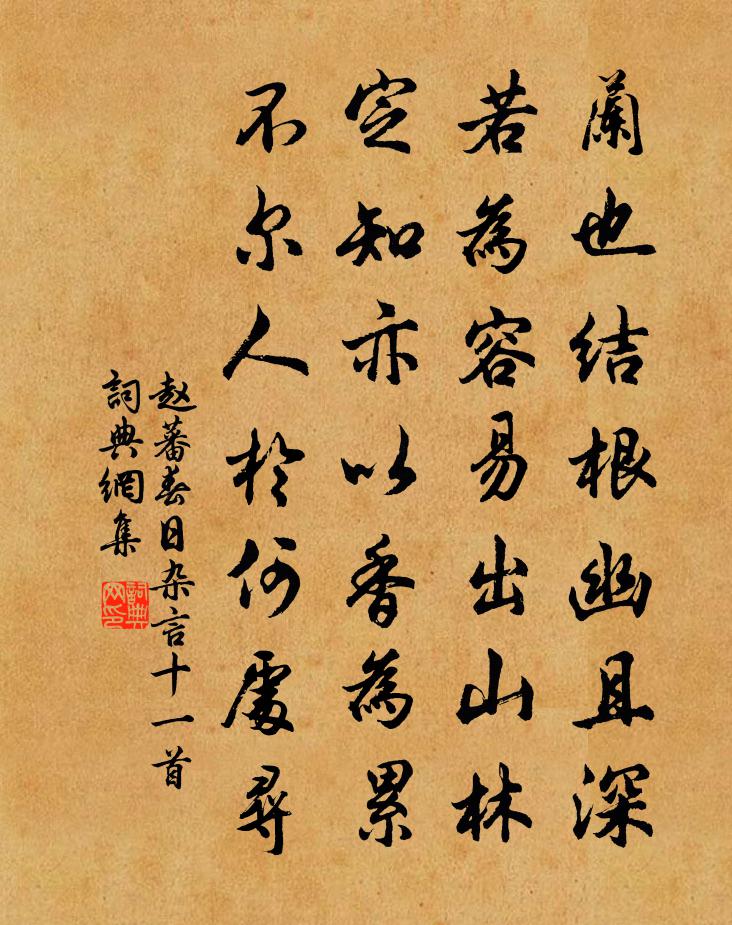 蘭也結根幽且深
若為容易出山林
定知亦以香為累
不尔人於何處尋
赵蕃春日杂言十一首
詞典網集
詞典网印